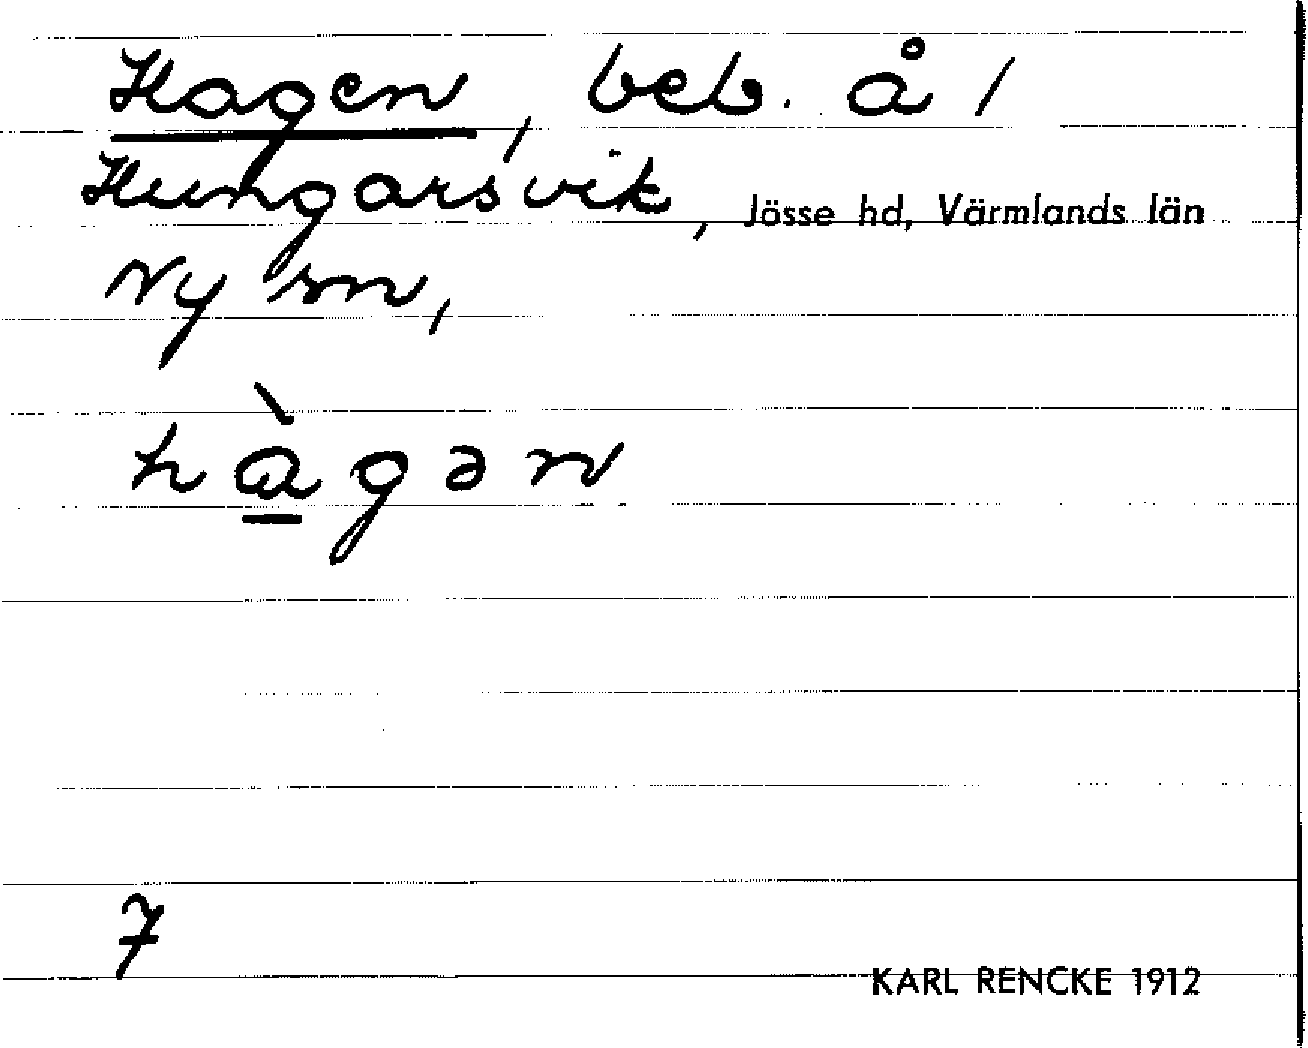 Hagen, beb. å 1
Hungarsvik, Jösse hd, Värmlands län
Ny sn,
hàgən
7
KARL RENCKE 1912